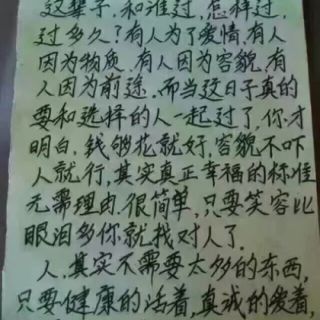 这辈子,和谁过,怎样过,
过多久?有人为了爱情,有人
因为物质,有人因为容貌,有
人因为前途.而当这日子真的
要和选择的人一起过了,你才
明白,钱够花就好,容貌不吓
人就行,其实真正幸福的标准
无需理由.很简单,只要笑容比
眼泪多你就找对人了.
人,其实不需要太多的东西,
只要健康的活着,真诚的爱着,